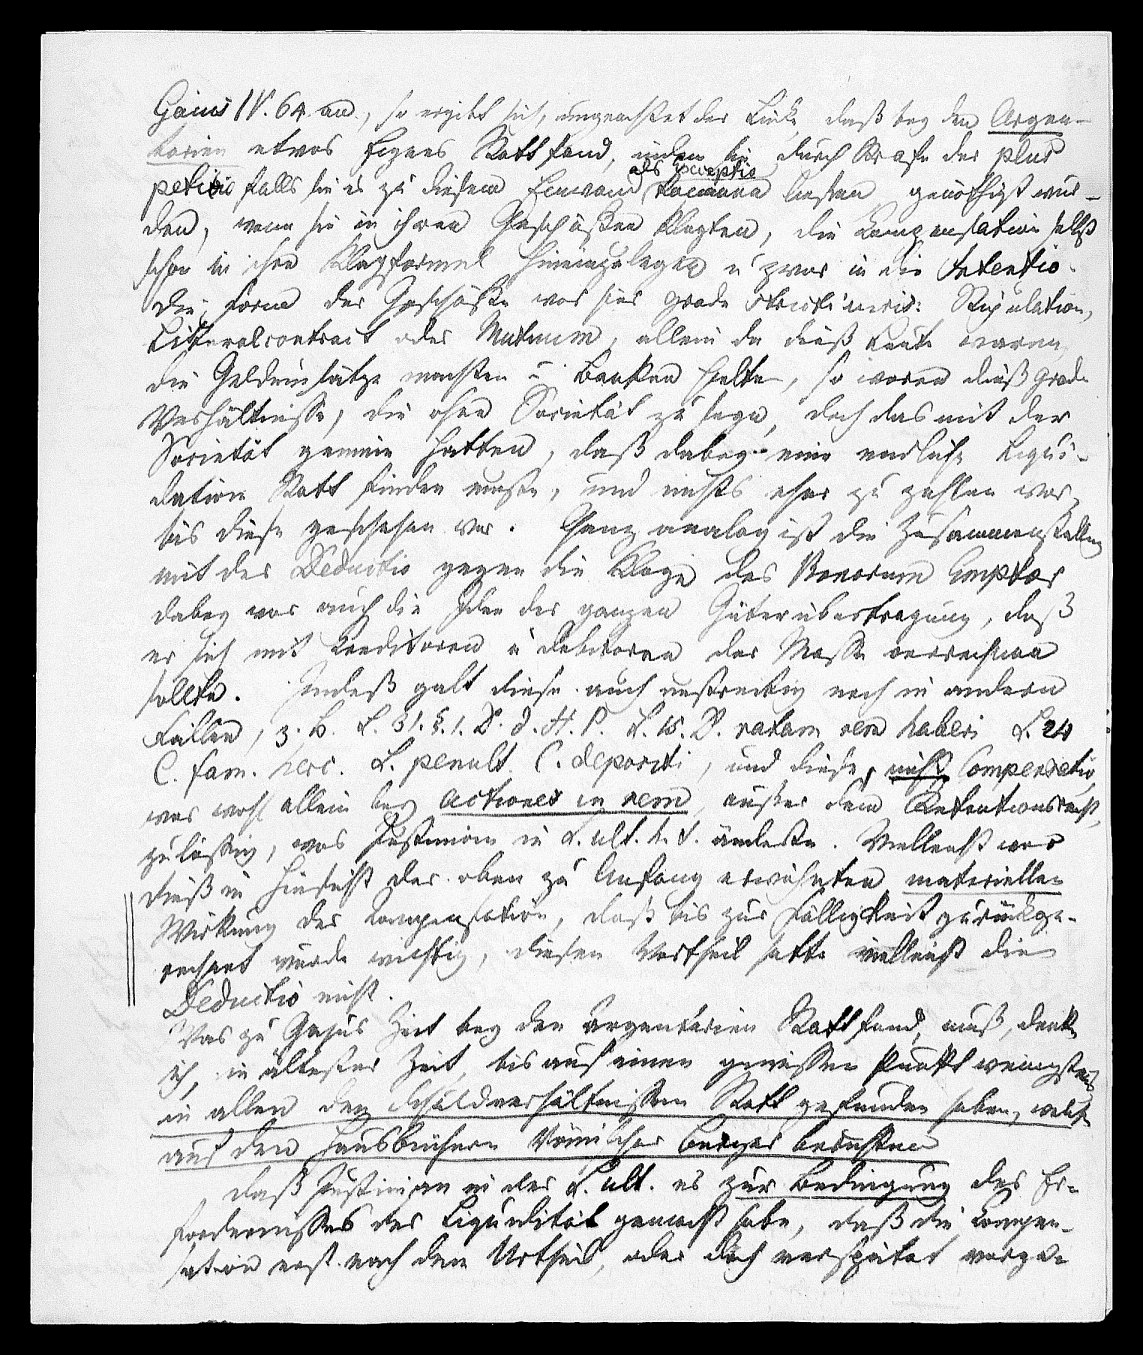 Gaius IV. 64 an., so ergibt sich, ungeachtet der Lücke daß bey den Argen-
tarien etwas Eignes Statt fand, indem sie durch Strafe der plus
petitio falls sie es zu diesem Einwand als exceptio kommen ließen genöthigt wur-
den, wenn sie in ihren Geschäften klagten, die Compensation selbst
schon in ihre Klagformel hineinzulegen u zwar in die Intentio.
Die Form der Geschäfte war hier grade stricti iuris: Stipulation,
Litteralcontract oder Mutuum, allein da dieß Leute waren,
die Geldumsätze machten u Banken hielten, so waren dieß grade
Verhältnisse, die ohne Societät zu seyn, doch das mit der
Societät gemein hatten, daß dabey eine endliche Liqui-
dation Statt finden mußte, und nichts eher zu zahlen war,
bis diese geschehen war. Ganz analog ist die Zusammenstellung
mit der Deductio gegen die Klage des Bonorum Emptor
dabey war auch die Idee der ganzen Güterübertragung, daß
er sich mit Creditoren u Debitoren der Masse verrechnen
sollte. Indeß galt diese auch unstreitig noch in andern
Fällen, z. B. L. 31. §. 1. D. d. H. P. L. 15. D. ratam rem haberi L. 24
C. fam. herc. L. penult. C. depositi, und diese, nicht Compensatio,
war wohl allein bey actiones in rem, außer dem Retentionsrecht,
zulässig, was Justinian in L. ult. h. t. änderte. Vielleicht war
dieß in Hinsicht der oben zu Anfang erwähnten materiellen
Wirkung der Compensation, daß bis zur Fälligkeit zurückge-
rechnet wurde wichtig, diesen Vortheil hatte vielleicht die
Deductio nicht.
Was zu Gajus Zeit bey den Argentarien Statt fand, muß, denke
ich, in ältester Zeit, bis auf einen gewissen Punkt wenigstens
in allen den Schuldverhältnissen Statt gefunden haben, welche
auf den Hausbüchern Römischer Bürger beruhten
daß Justinian in der L. ult. es zur Bedingung des Er-
fordernisses der Liquidität gemacht habe, daß die Compen-
sation erst nach dem Urtheil, oder doch verspätet vorge-